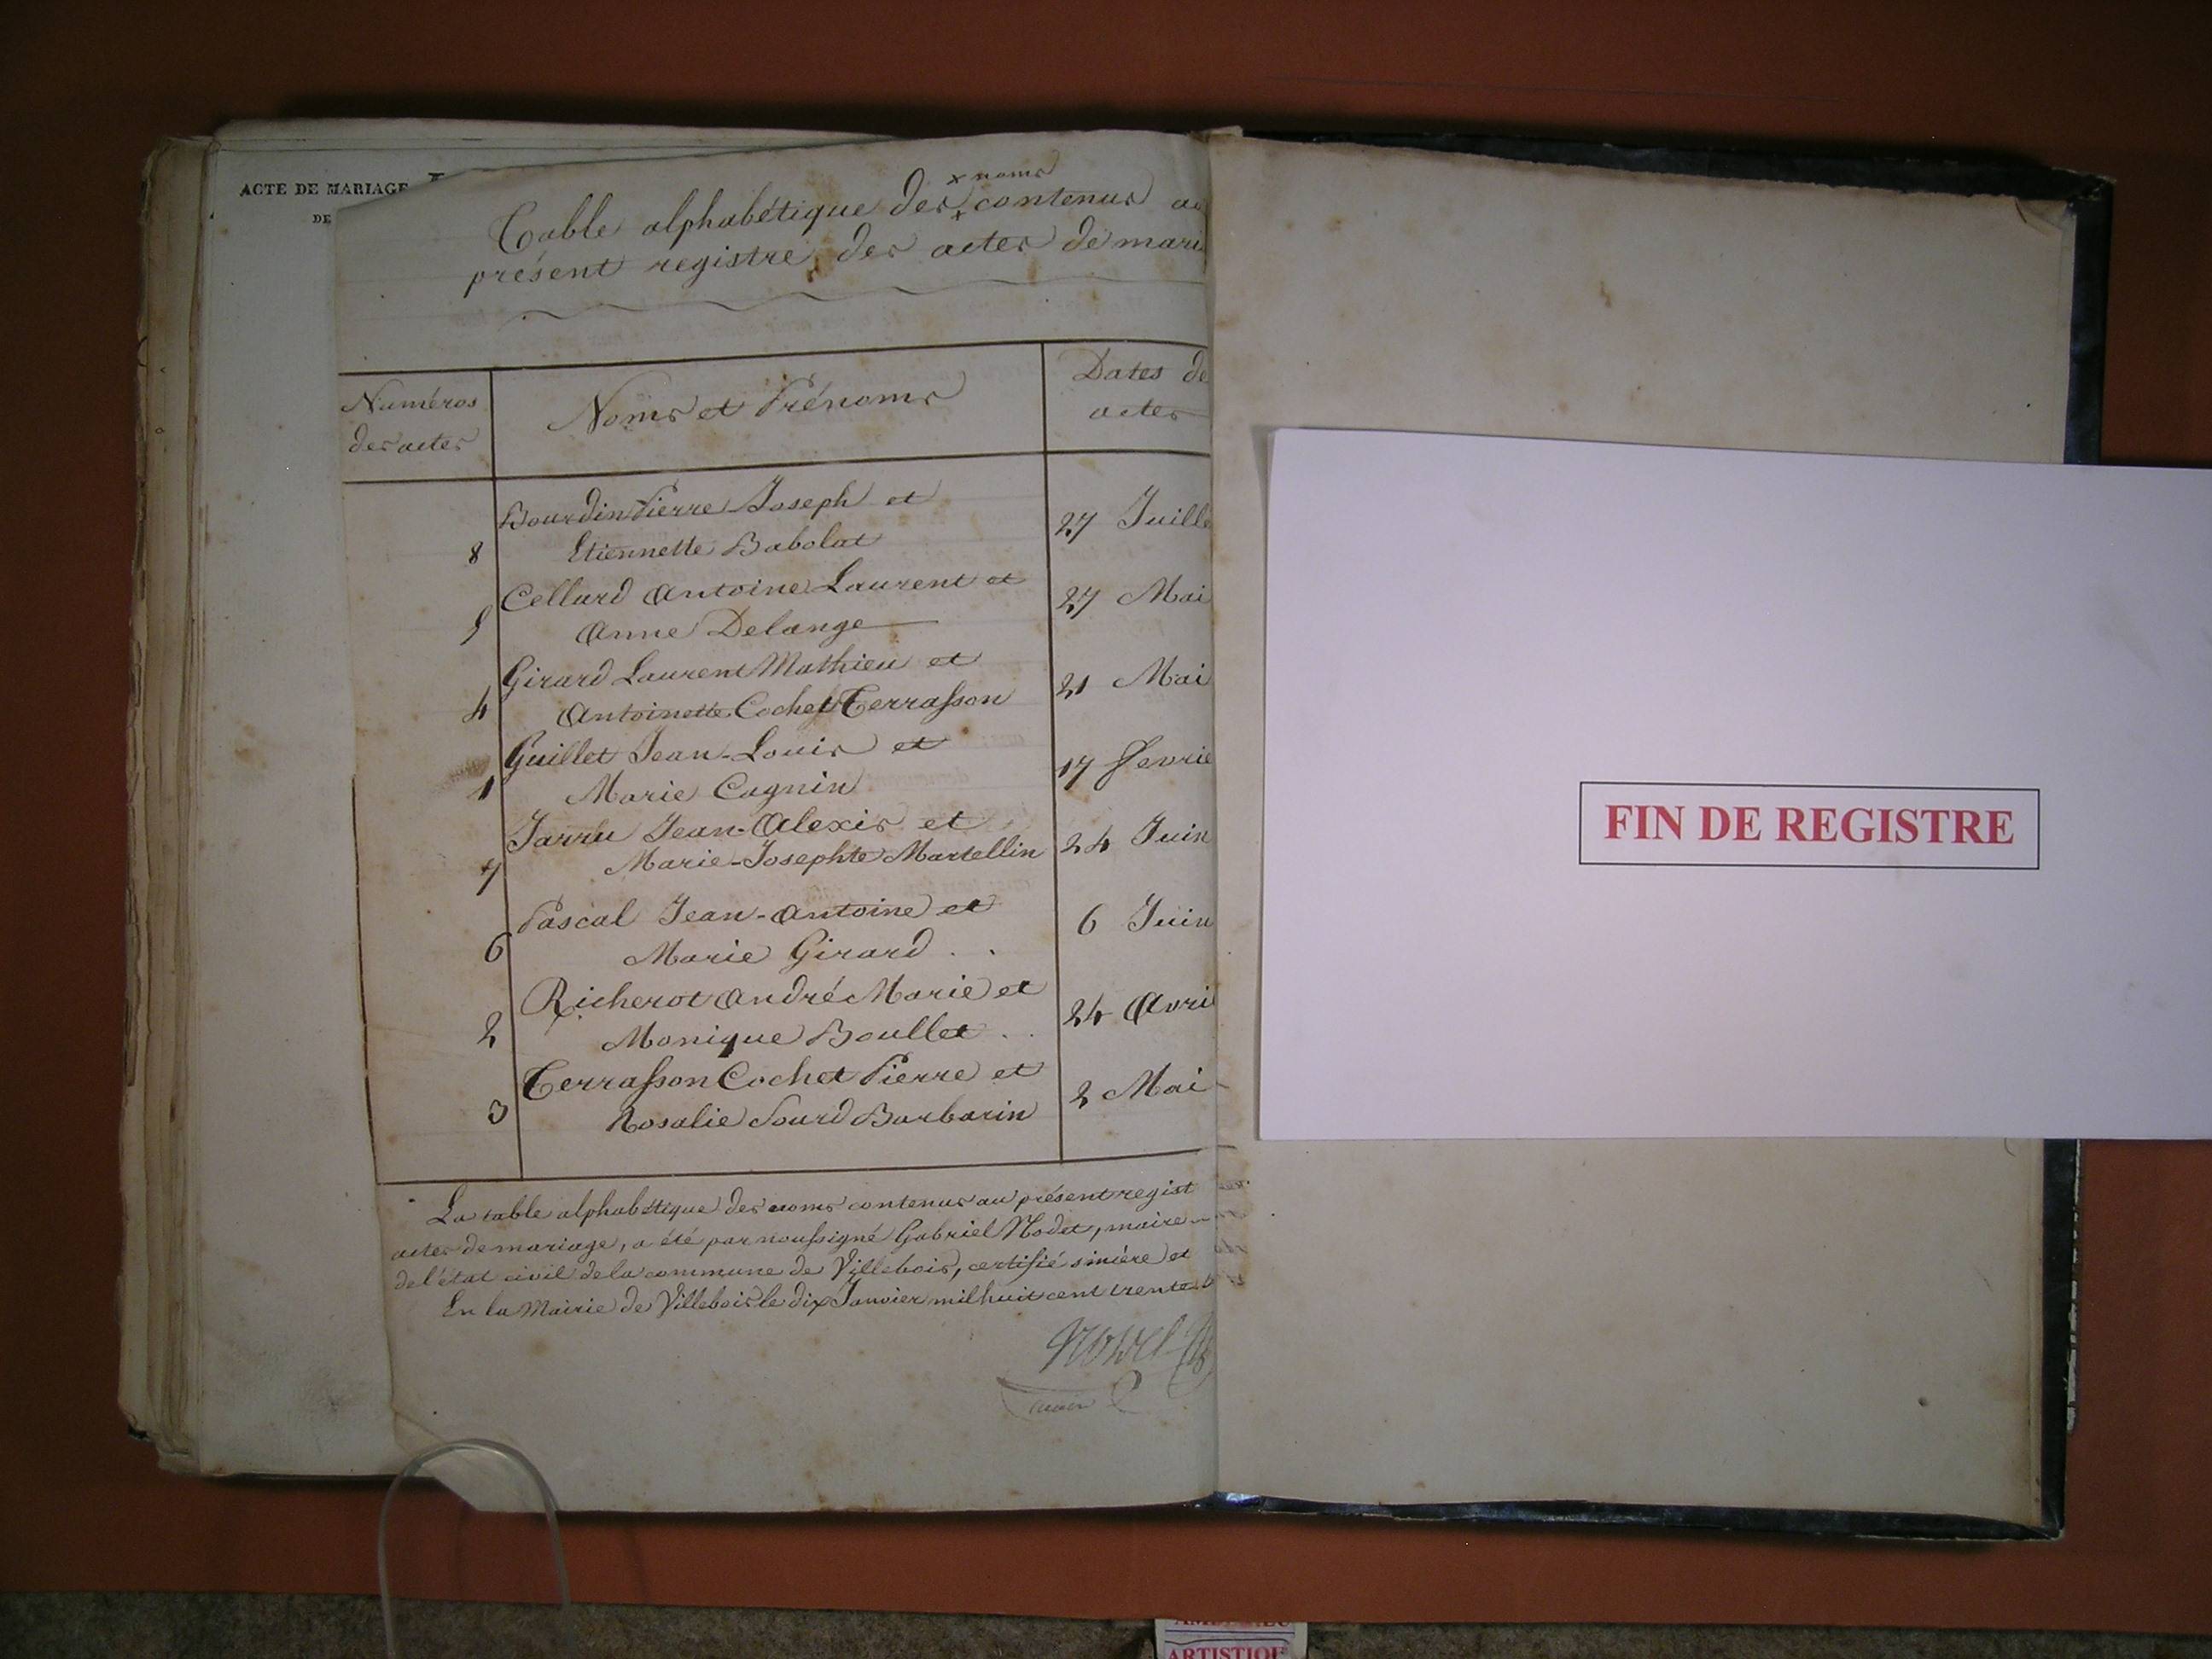 ACTE DE MARIAGE
DE
x noms
Table alphabétique des x contenus au
présent registre des actes de mari
Numéros
des actes
Noms et Prénoms
Dates de
actes
Bourdin Pierre Joseph et
8 Etiennette Babolat
27 Juille
Cellard Antoine Laurent et
5 Anne Delange
27 Mai
Girard Laurent Mathieu et
4 Antoinette Cochet Terrasson
21 Mai
Guillet Jean-Louis et
1 Marie Cagnin
17 fevrie
Jarru Jean-Alexis et
7 Marie-Josephte Martellin
24 Juin
Pascal Jean-Antoine et
6 Marie Girard . .
6 Juin
Richerot André Marie et
2 Monique Boullet . .
24 Avri
Terrasson Cochet Pierre et
3 Rosalie Sourd Barbarin
2 Mai
La table alphabétique des noms contenus au présent regist
actes de mariage, a été par noussigné Gabriel Nodet, maire
de l'état civil de la commune de Villebois, certifié sinière et
En la Mairie de Villebois le dix Janvier mil huit cent trente
FIN DE REGISTRE
ARTISTIQE